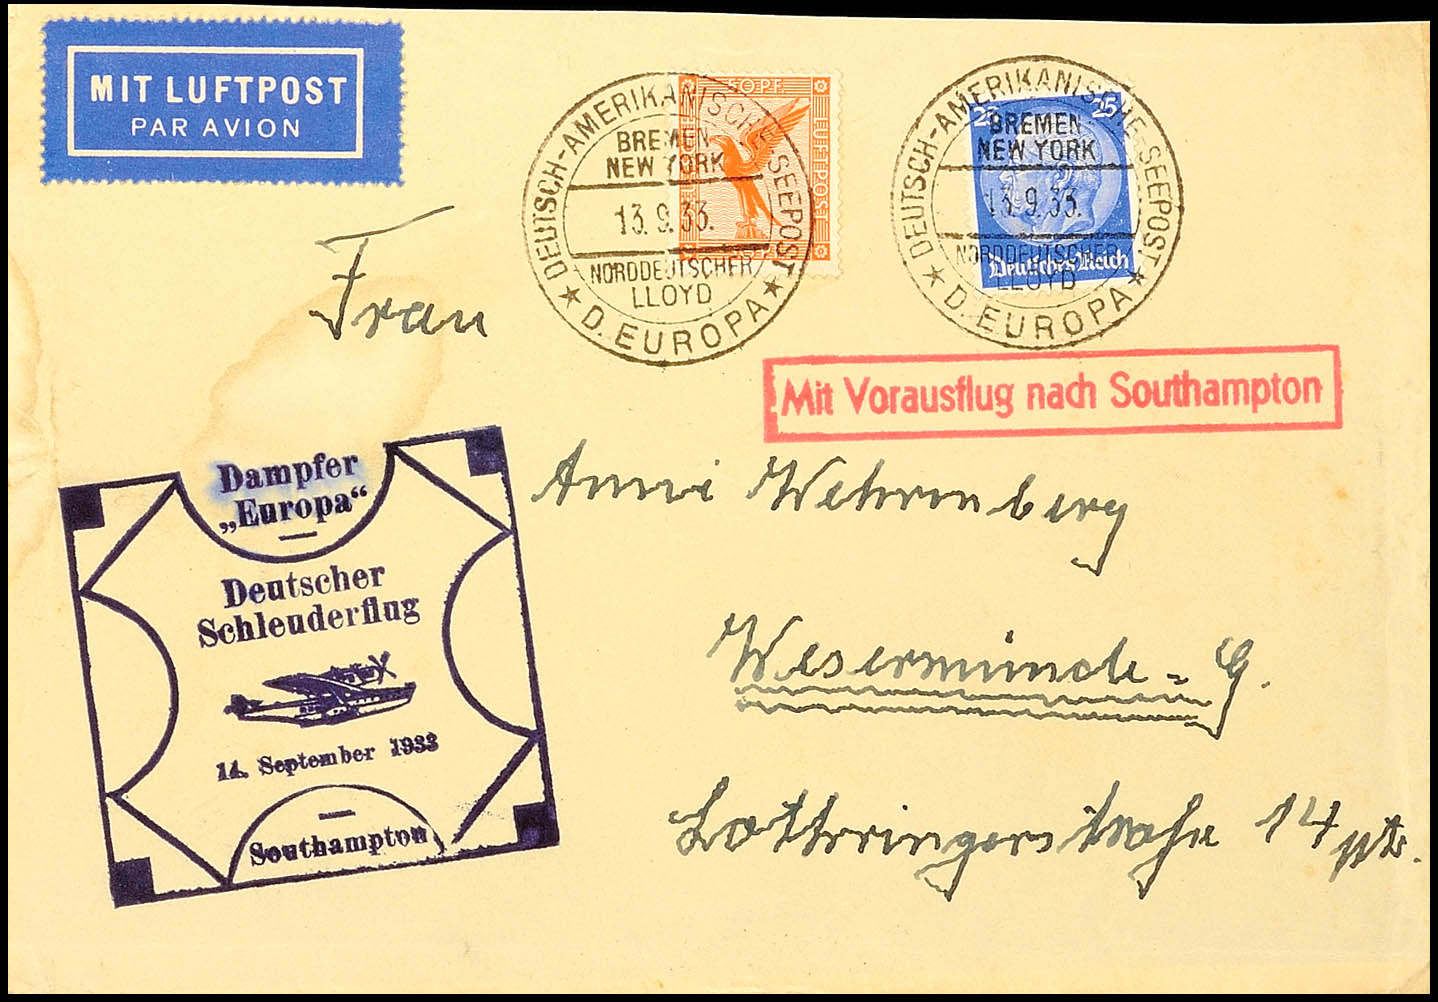 MIT LUFTPOST
PAR AVION
50 PF.
LUFTPOST
DEUTSCH-AMERIKANISCHE-SEEPOST
BREMEN
NEW YORK
13.9.33.
NORDDEUTSCHER
LLOYD
★ D. EUROPA ★
25 25
Deutsches Reich
DEUTSCH-AMERIKANISCHE-SEEPOST
BREMEN
NEW YORK
13.9.33.
NORDDEUTSCHER
LLOYD
★ D. EUROPA ★
Frau
Mit Vorausflug nach Southampton
Anni Wehrenberg
Wesermünde - G.
Lothringerstraße 14 pt.
Dampfer
„Europa“
Deutscher
Schleuderflug
14. September 1933
Southampton